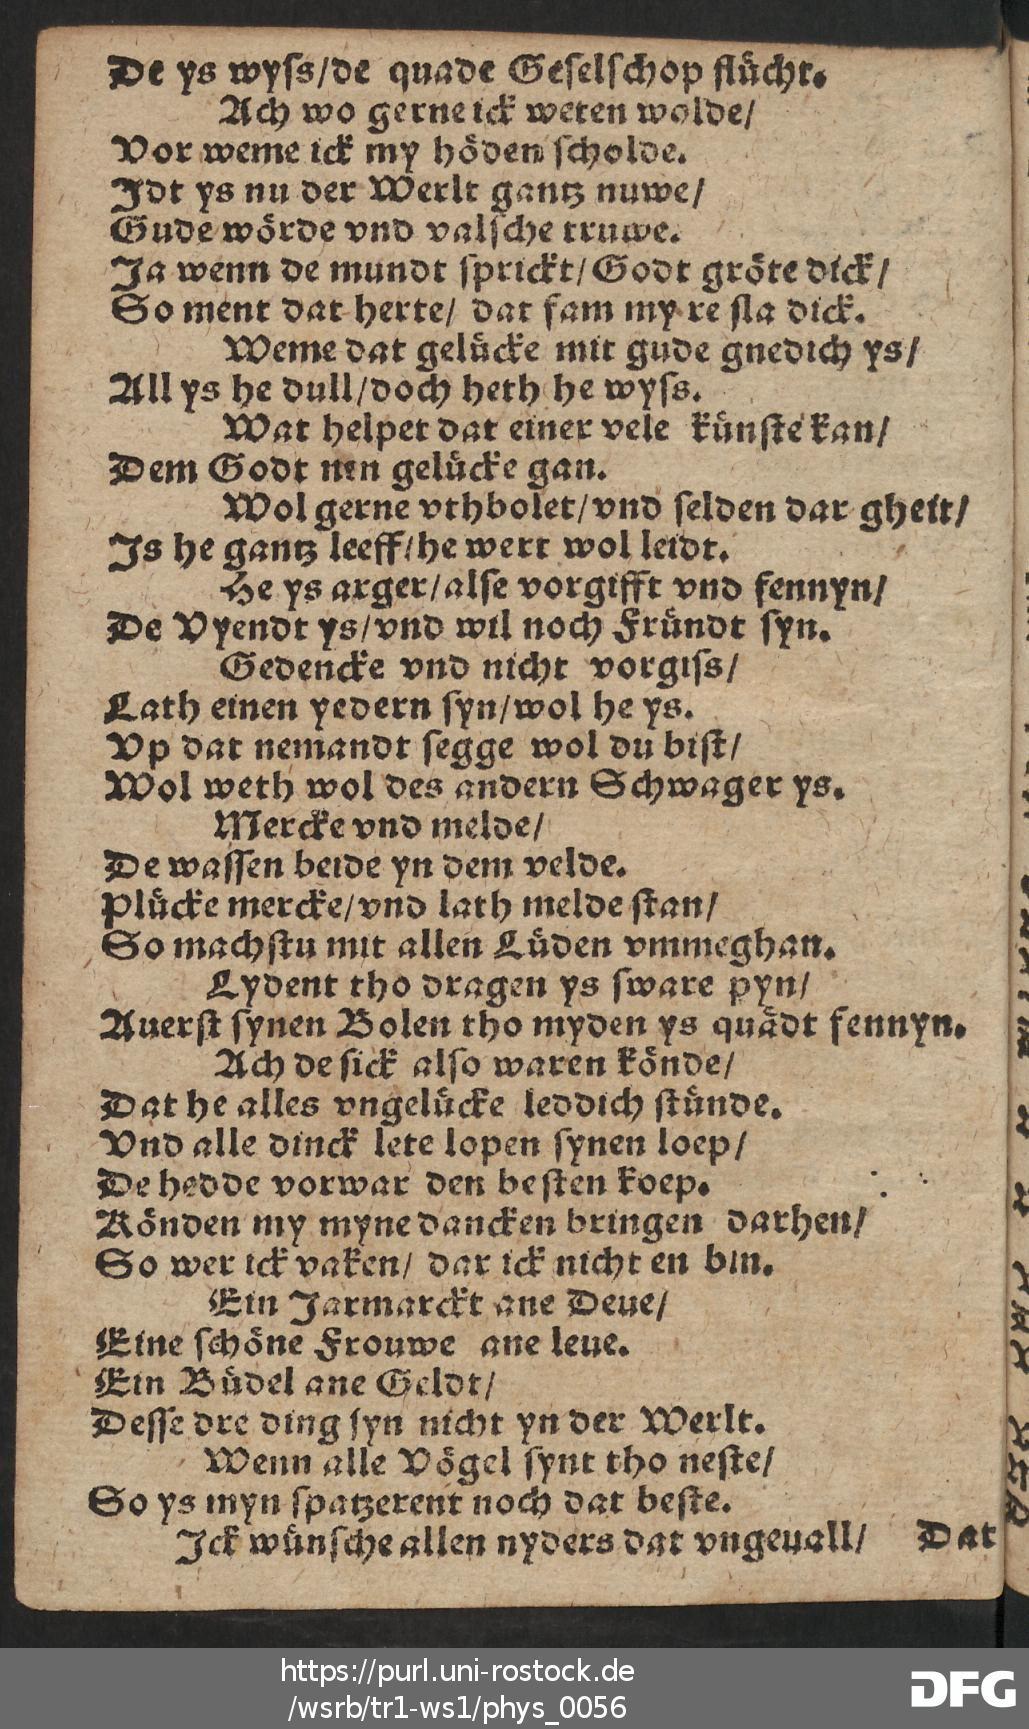 De ys wyſs/de quade Geſelſchop flücht.
Ach wo gerne ick weten wolde/
Vor weme ick my höden ſcholde.
Jdt ys nu der Werlt gantz nuwe/
Gude wörde vnd valſche truwe.
Ja wenn de mundt ſprickt/Godt gröte dick/
So ment dat herte/ dat fam my re ſla dick.
Weme dat gelücke mit gude gnedich ys/
All ys he dull/doch heth he wyſs.
Wat helpet dat einer vele künſte kan/
Dem Godt nen gelücke gan.
Wol gerne vthbolet/vnd ſelden dar gheit/
Js he gantz leeff/he wert wol leidt.
He ys arger/alſe vorgifft vnd fennyn/
De Vyendt ys/vnd wil noch Fründt ſyn.
Gedencke vnd nicht vorgiſs/
Lath einen yedern ſyn/wol he ys.
Vp dat nemandt ſegge wol du biſt/
Wol weth wol des andern Schwager ys.
Mercke vnd melde/
De waſſen beide yn dem velde.
Plücke mercke/vnd lath melde ſtan/
So machſtu mit allen Lüden vmmeghan.
Lydent tho dragen ys ſware pyn/
Auerſt ſynen Bolen tho myden ys quädt fennyn.
Ach de ſick alſo waren könde/
Dat he alles vngelücke leddich ſtünde.
Vnd alle dinck lete lopen ſynen loep/
De hedde vorwar den beſten koep.
Könden my myne dancken bringen darhen/
So wer ick vaken/ dar ick nicht en bin.
Ein Jarmarckt ane Deue/
Eine ſchöne Frouwe ane leue.
Ein Büdel ane Geldt/
Deſſe dre ding ſyn nicht yn der Werlt.
Wenn alle Vögel ſynt tho neſte/
So ys myn ſpatzerent noch dat beſte.
Jck wünſche allen nyders dat vngeuall/ Dat
https://purl.uni-rostock.de
/wsrb/tr1-ws1/phys_0056
DFG